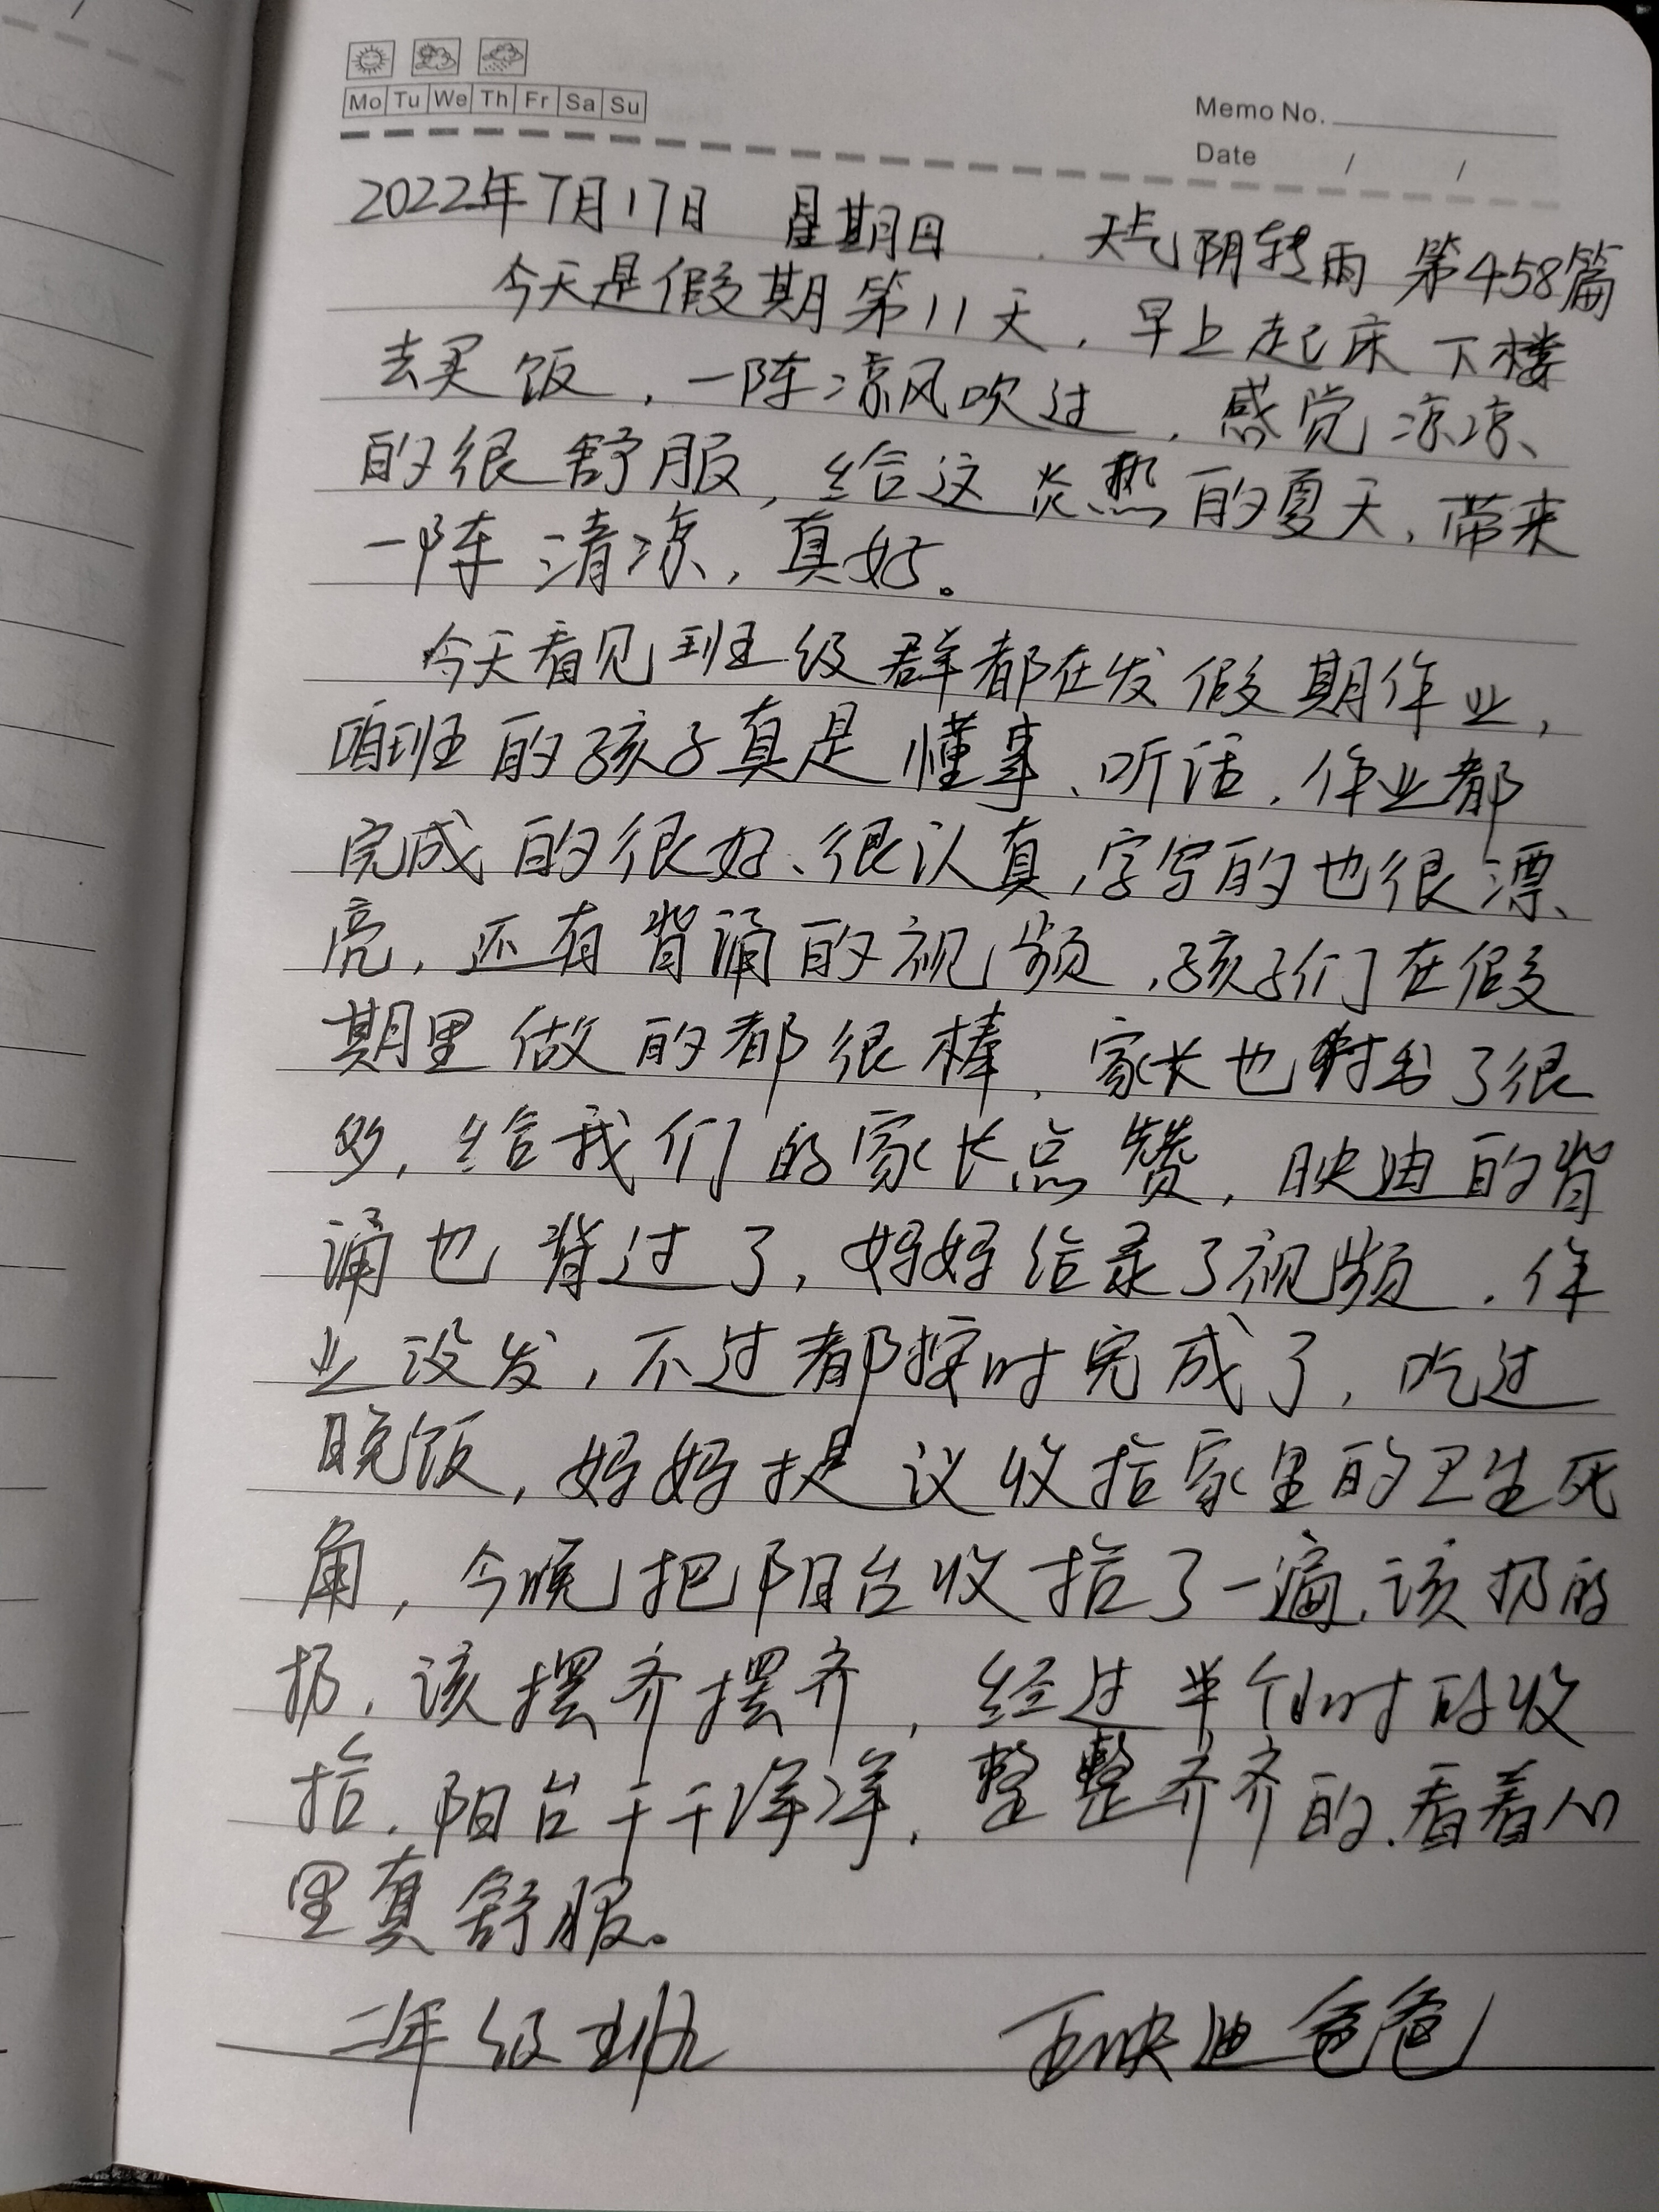 Mo Tu We Th Fr Sa Su
Memo No.
Date / /
2022年7月17日 星期日 天气阴转雨 第458篇
今天是假期第11天，早上起床下楼
去买饭，一阵凉风吹过，感觉凉凉
的很舒服，给这炎热的夏天，带来
一阵清凉，真好。
今天看见班级群都在发假期作业，
咱班的孩子真是懂事、听话，作业都
完成的很好、很认真，字写的也很漂
亮，还有背诵的视频，孩子们在假
期里做的都很棒，家长也付出了很
多，给我们的家长点赞，映迪的背
诵也背过了，妈妈给录了视频，作
业没发，不过都按时完成了，吃过
晚饭，妈妈提议收拾家里的卫生死
角，今晚把阳台收拾了一遍，该扔的
扔，该摆齐摆齐，经过半个小时的收
拾，阳台干干净净，整整齐齐的，看着心
里真舒服。
二年级班
映迪爸爸